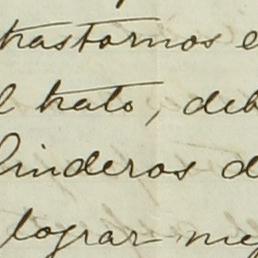 trastornos e
l trato, deb
linderos d
lograr me